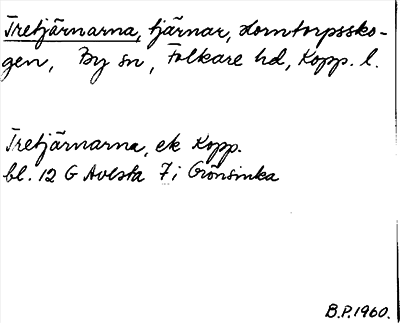 Tretjärnarna, tjärnar, Horntorpssko-
gen, By sn, Folkare hd, Kopp. l.
Tretjärnarna, ek Kopp.
bl. 12 G Avesta 7 i Grönsinka
B.P. 1960.